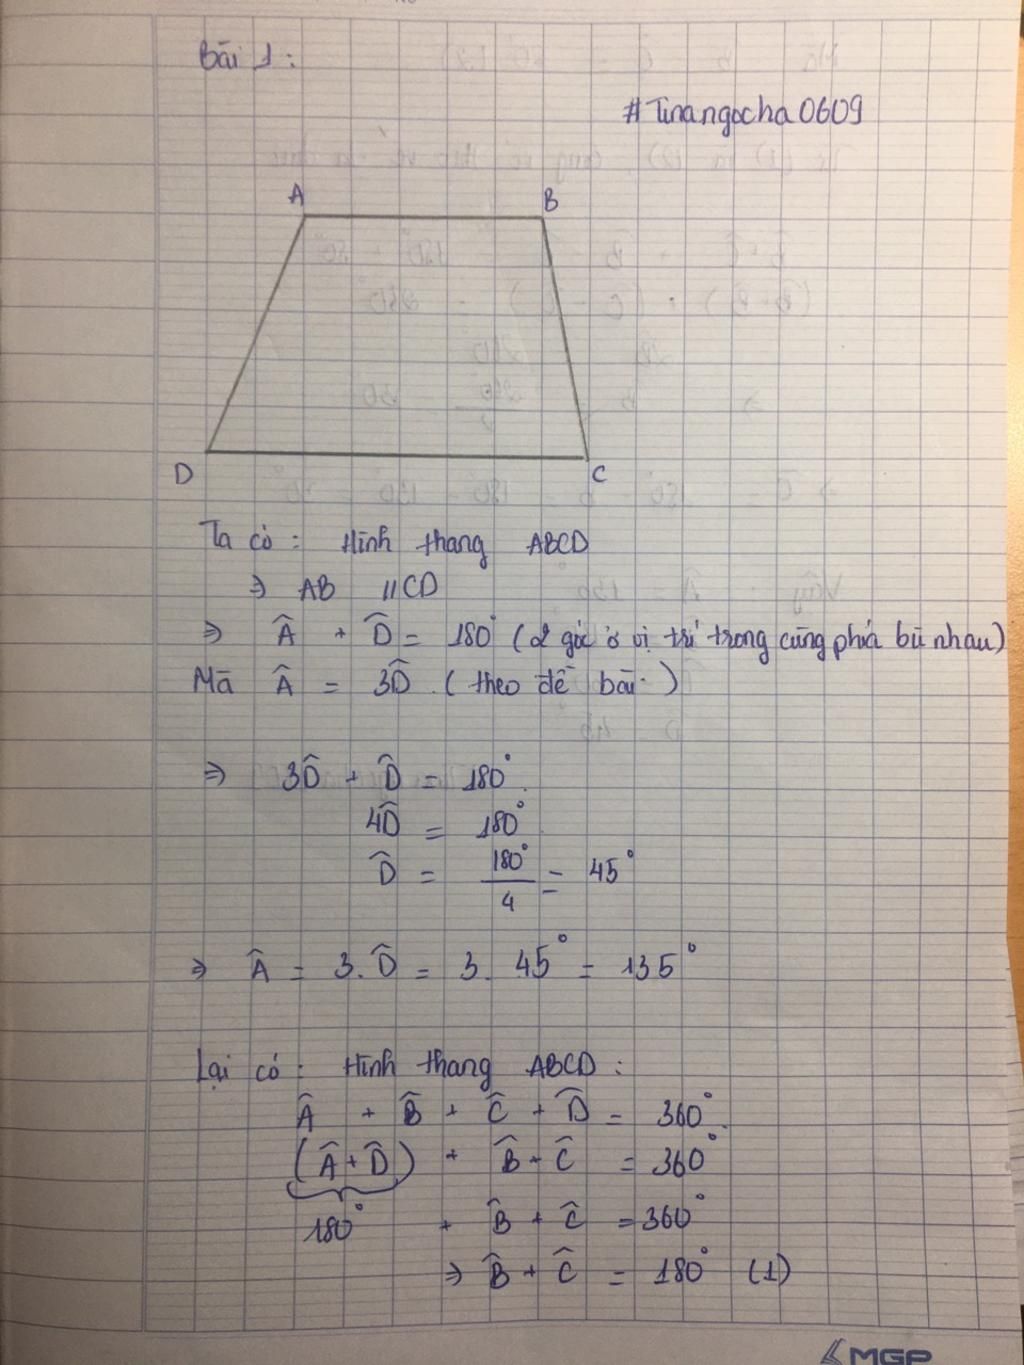 Bài 1:
#Tinangocha0609
A B
D C
Ta có: Hình thang ABCD
⇒ AB // CD
⇒ Â + D̂ = 180° (2 góc ở vị trí trong cùng phía bù nhau)
Mà Â = 3D̂. (theo đề bài.)
⇒ 3D̂ + D̂ = 180°.
4D̂ = 180°.
D̂ = 180°/4 = 45°
⇒ Â = 3. D̂ = 3. 45° = 135°
Lại có: Hình thang ABCD:
Â + B̂ + Ĉ + D̂ = 360°.
(Â + D̂) + B̂ + Ĉ = 360°
180° + B̂ + Ĉ = 360°
⇒ B̂ + Ĉ = 180° (1)
MGP